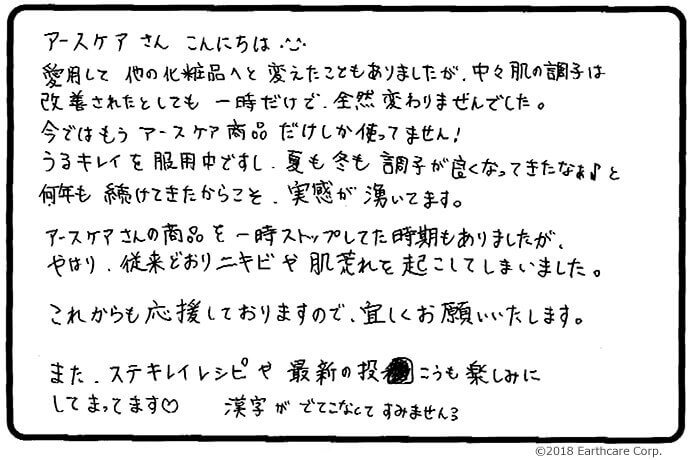 アースケアさん こんにちは
愛用して 他の化粧品へと変えたこともありましたが、中々肌の調子は
改善されたとしても 一時だけで、全然変わりませんでした。
今ではもう アースケア商品だけしか使ってません!
うるキレイを服用中ですし、夏も冬も 調子が良くなってきたなぁ♪と
何年も 続けてきたからこそ、実感が 湧いてます。
アースケアさんの商品を一時ストップしてた時期もありましたが、
やはり、従来どおりニキビや肌荒れを起こしてしまいました。
これからも応援しておりますので、宜しくお願いいたします。
また、ステキレイレシピや 最新の投こうも楽しみに
してまってます♡ 漢字が でてこなくてすみません
©2018 Earthcare Corp.